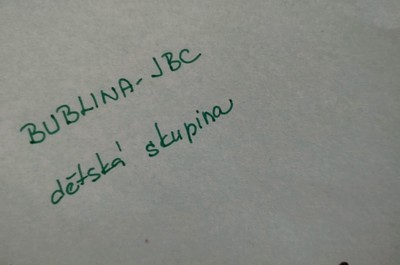 BUBLINA-JBC
dětská skupina